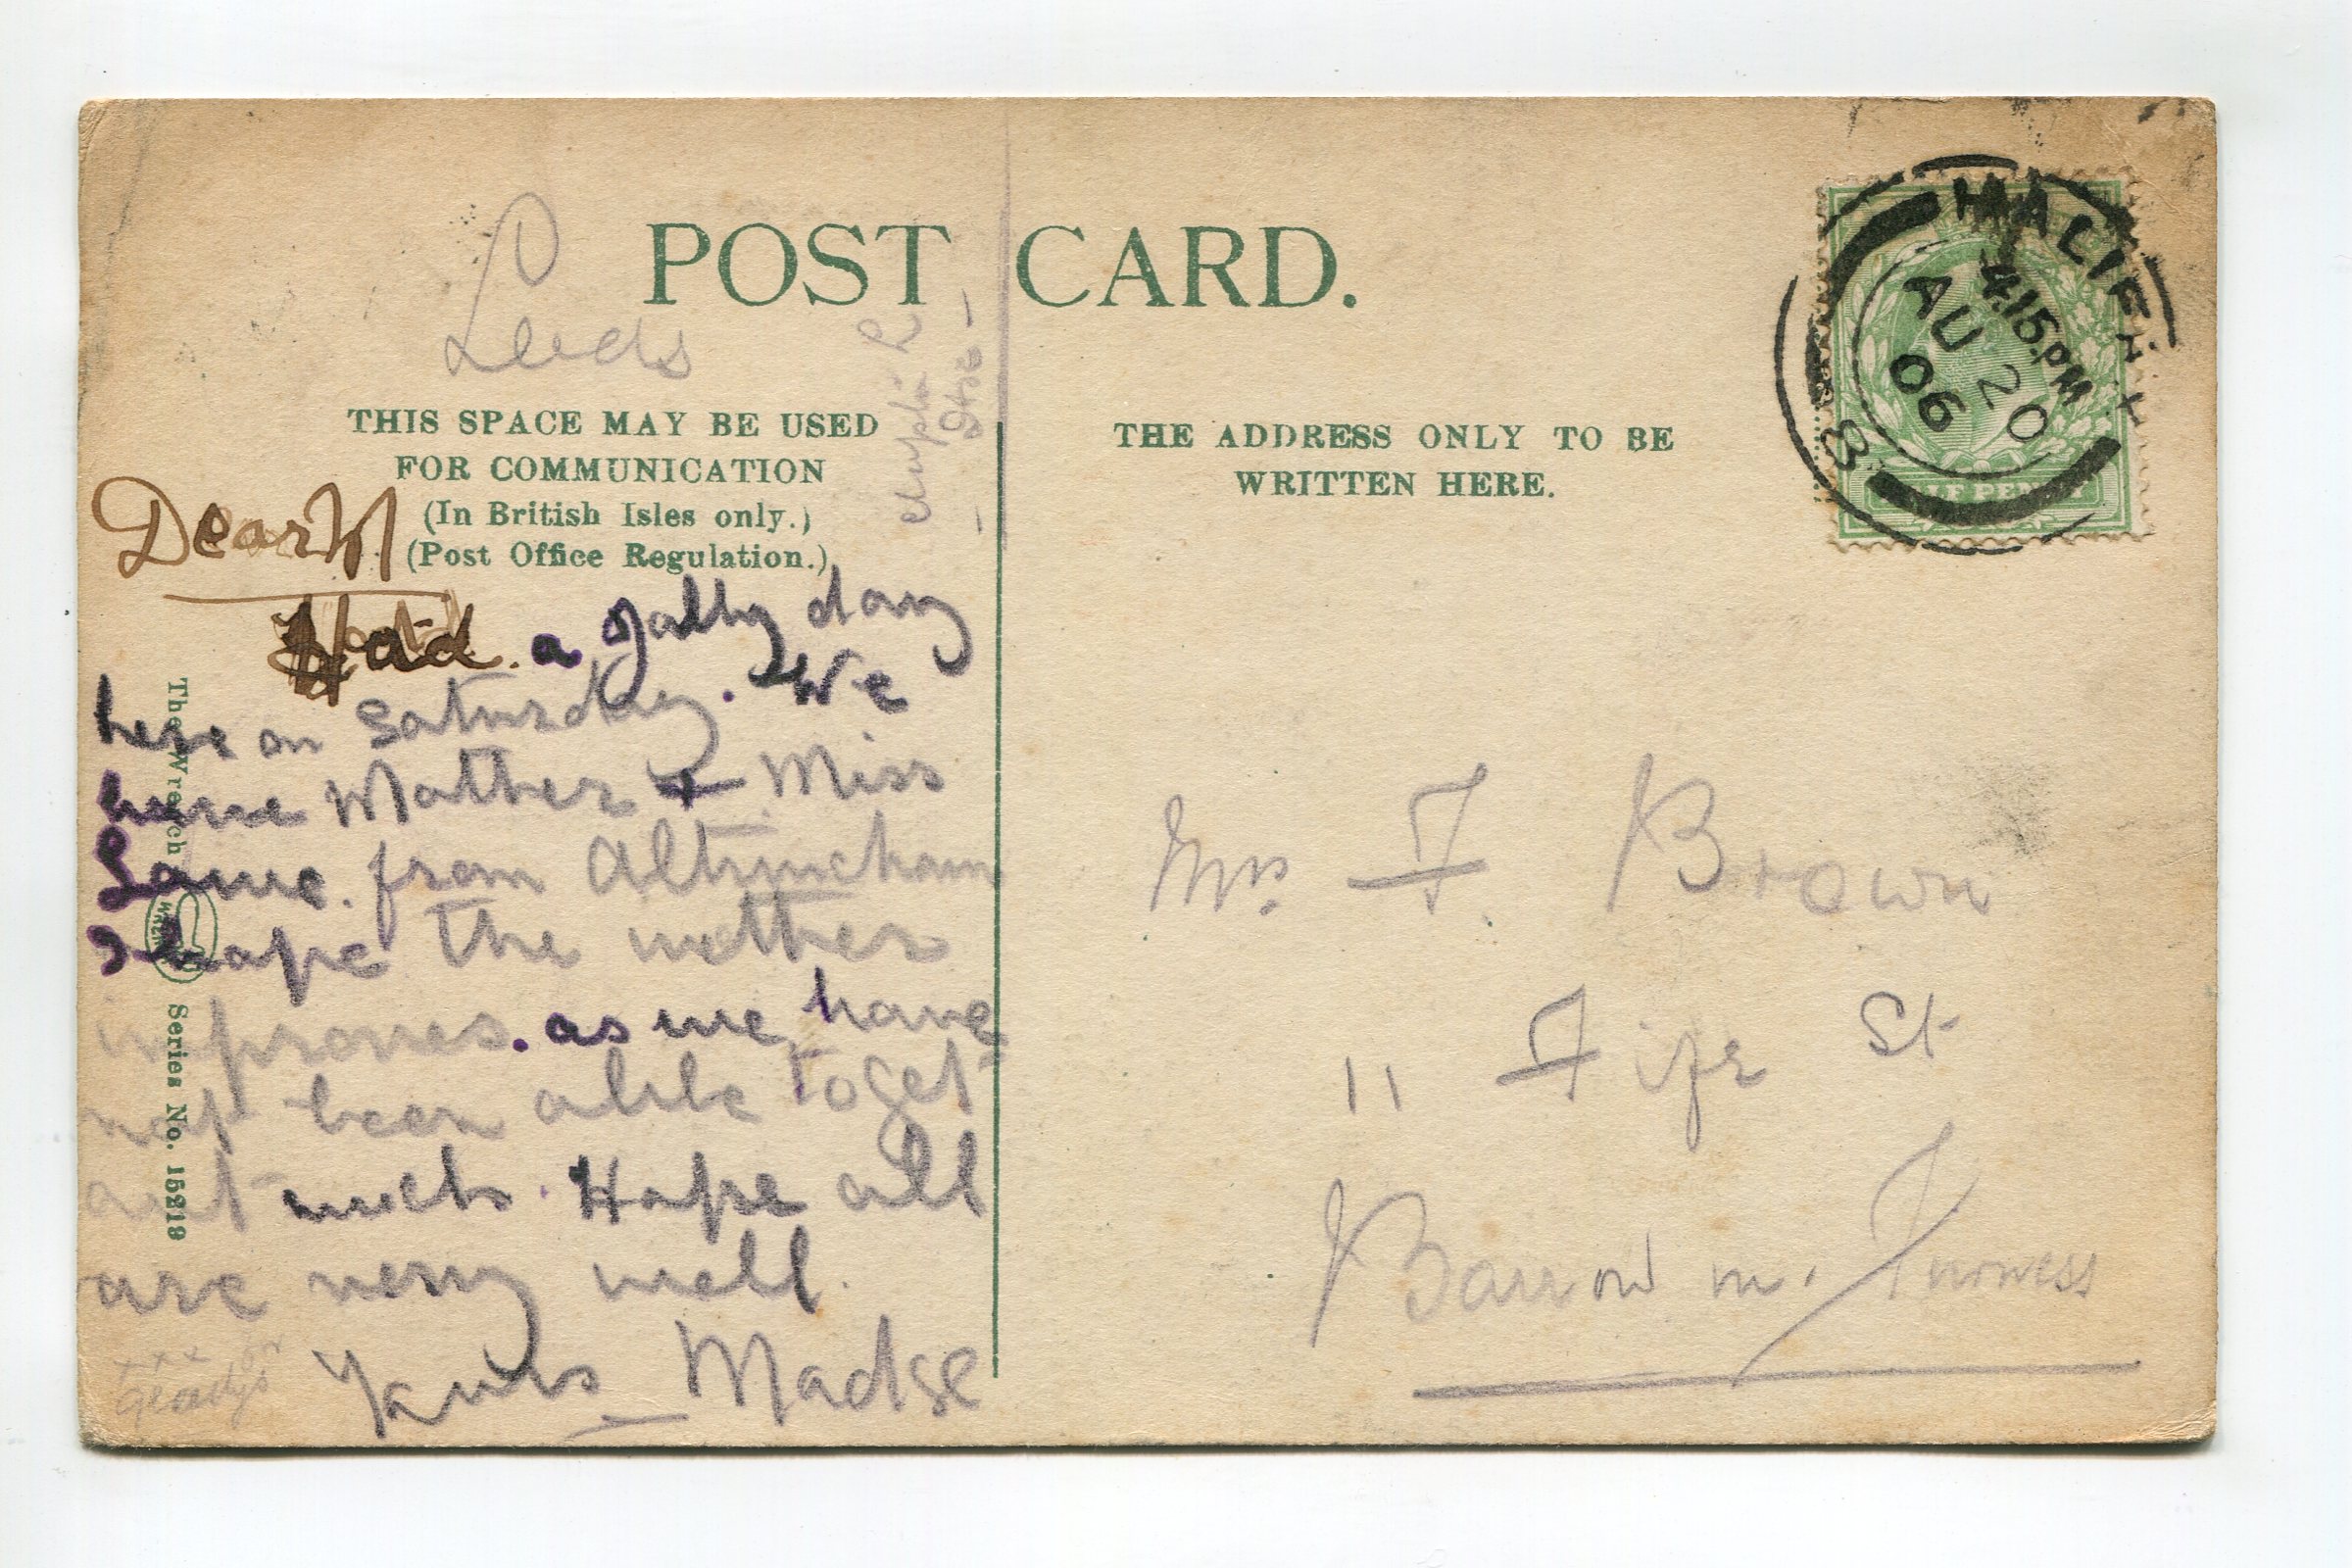 POST CARD.
Leeds
THIS SPACE MAY BE USED
FOR COMMUNICATION
(In British Isles only.)
(Post Office Regulation.)
Dear M
Had a Jolly day
here on Saturday. We
have Mother + Miss
from Altrincham
I hope the wether
improves. as we have
not been able to get
out much. Hope all
are very well.
Yours Madge
xxx for
Gladys
The Wrench
WRENCH
Series No. 15219
THE ADDRESS ONLY TO BE
WRITTEN HERE.
Mrs. F. Brown
11 Fife St
Barrow in. Furness
HALIFAX
4.15 PM
AU 20
06
8
HALF PENNY